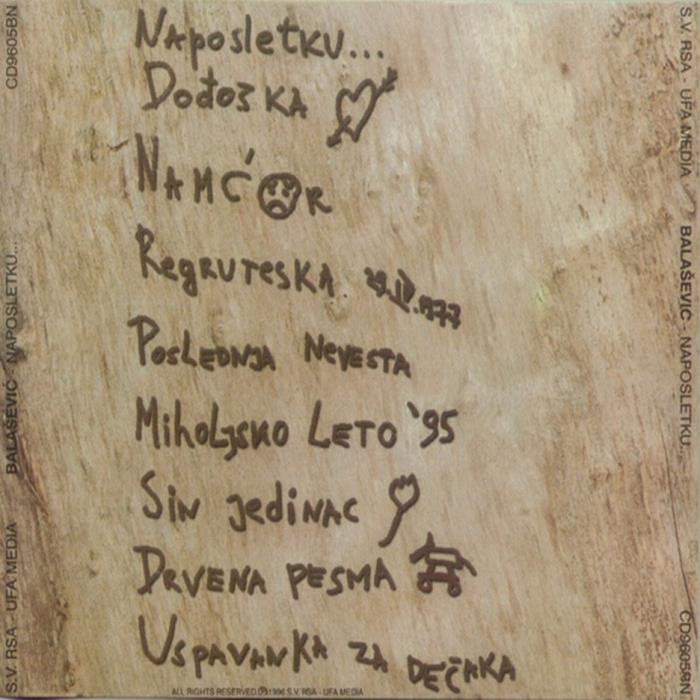 Naposletku...
Dođoš KA
NAMĆOR
RegRuTesKA 29.IV.1977
PosLEDNJA NeVESTA
MihoLjsKo LETO '95
SiN jediNAC
DRVENA PESMA
UspavanKA ZA DEČAKA
CD9605BN
BALAŠEVIĆ - NAPOSLETKU...
S.V. RSA - UFA MEDIA
S.V. RSA - UFA MEDIA
BALAŠEVIĆ - NAPOSLETKU...
CD9605BN
ALL RIGHTS RESERVED.℗©1996 S.V. RSA - UFA MEDIA